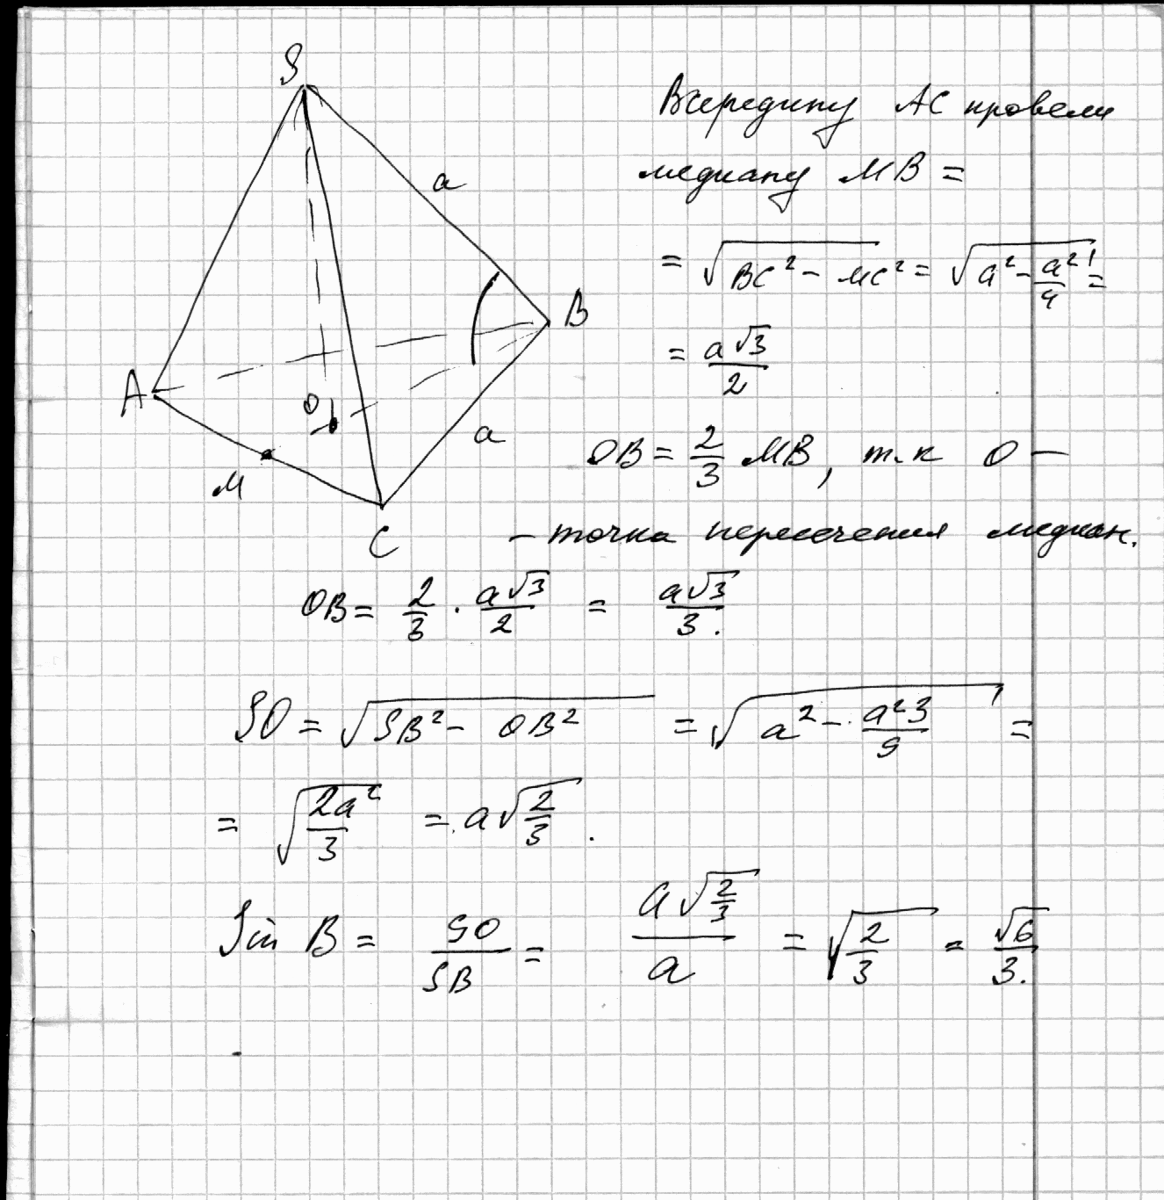 S
a
B
A
O
a
M
C
Всередину AC провели
медиану MB =
= √(BC² - MC²) = √(a² - a²/4) =
= a√3/2
OB = 2/3 MB, т.к O —
— точка пересечения медиан.
OB = 2/3 · a√3/2 = a√3/3.
SO = √(SB² - OB²) = √(a² - a²3/9) =
= √(2a²/3) = a√(2/3).
Sin B = SO/SB = a√(2/3)/a = √(2/3) = √6/3.